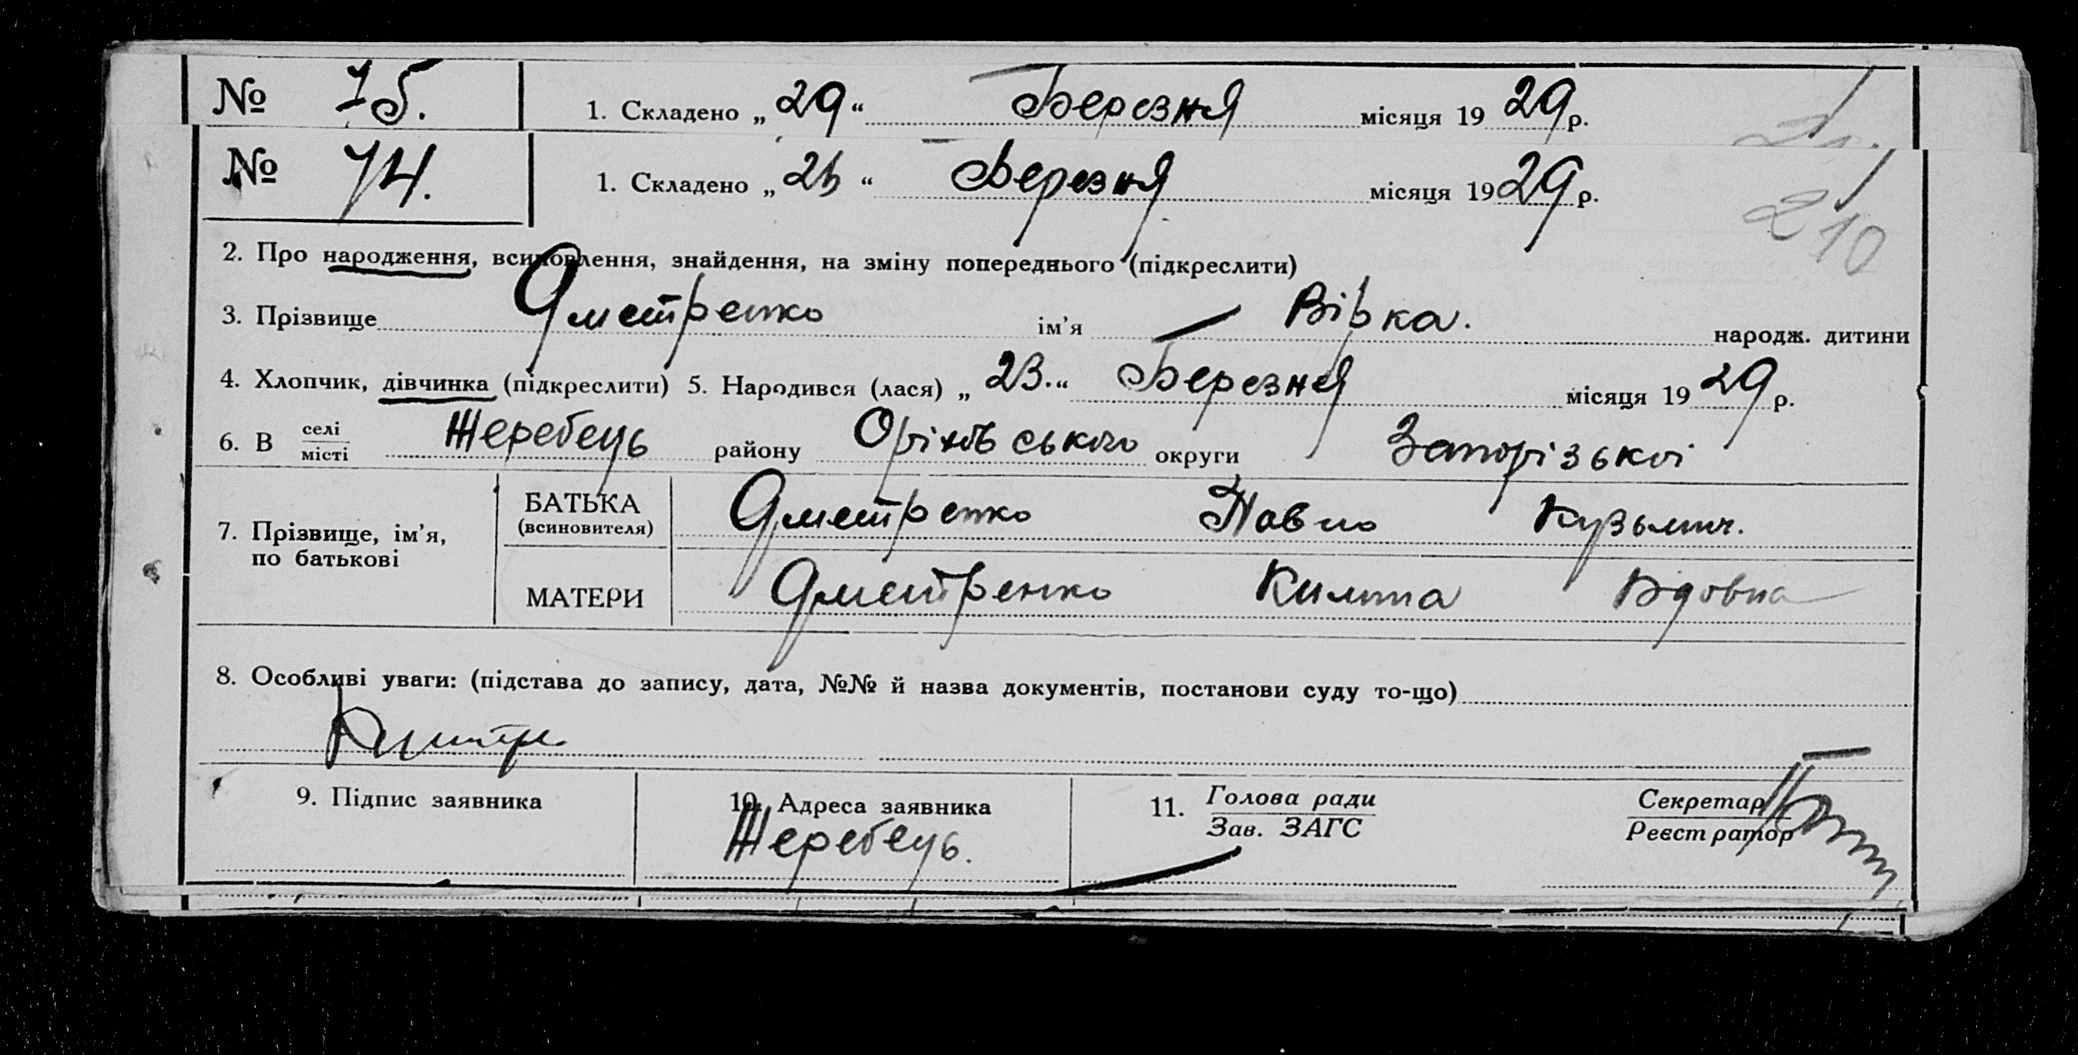 № 75. 1. Складено „ 29 “ Березня місяця 19 29 р.
№ 74. 1. Складено „ “ Березня місяця 19 29 р.
210
2. Про народження, всиновлення, знайдення, на зміну попереднього (підкреслити)
3. Прізвище Дметренко ім’я Вірка. народж. дитини
4. Хлопчик, дівчинка (підкреслити) 5. Народився (лася) „ 23. “ Березня місяця 19 29 р.
6. В селі місті Жеребець району Оріхівського округи Запорізької
7. Прізвище, ім’я, по батькові
БАТЬКА (всиновителя) Дметренко Павло Кузьмич.
МАТЕРИ Дметренко
8. Особливі уваги: (підстава до запису, дата, №№ й назва документів, постанови суду то-що)
9. Підпис заявника 10. Адреса заявника 11. Голова ради Зав. ЗАГС Секретар Реєстратор
Жеребець.